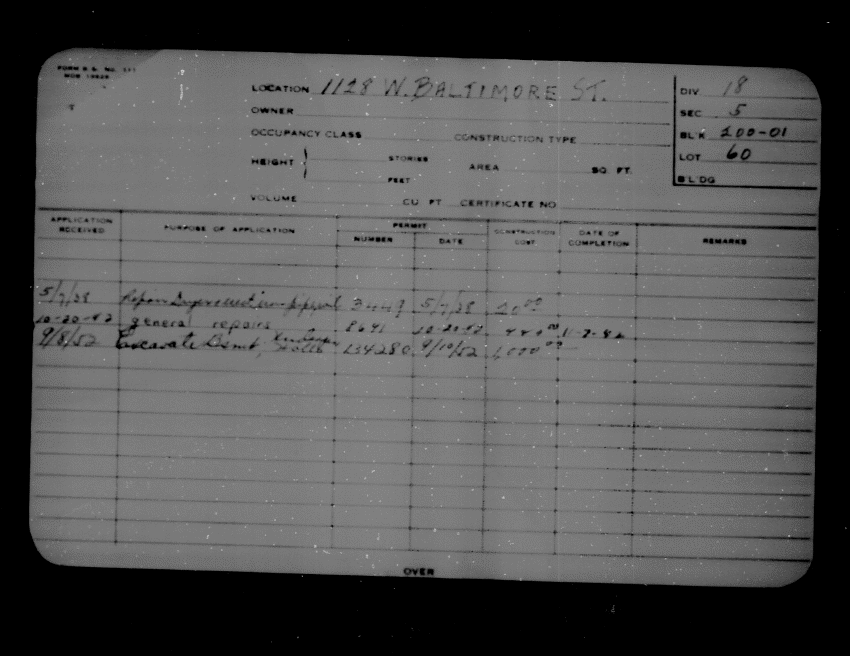 FORM B.E. NO. 111
MOR 19629
LOCATION 1128 W. BALTIMORE ST.
DIV 18
OWNER
SEC 5
OCCUPANCY CLASS CONSTRUCTION TYPE
BL'K 200-01
HEIGHT } STORIES AREA SQ. FT.
LOT 60
FEET
B'L'DG
VOLUME CU FT CERTIFICATE NO
APPLICATION RECEIVED PURPOSE OF APPLICATION PERMIT CONSTRUCTION COST DATE OF COMPLETION REMARKS
NUMBER DATE
5/7/28 Repair 3449 5/7/28 20 00
10-20-42 general repairs 8641 10-20-42 440 00 11-7-42
9/8/52 Excavate Bsmt, 134280 9/10/52 1,000 00
OVER